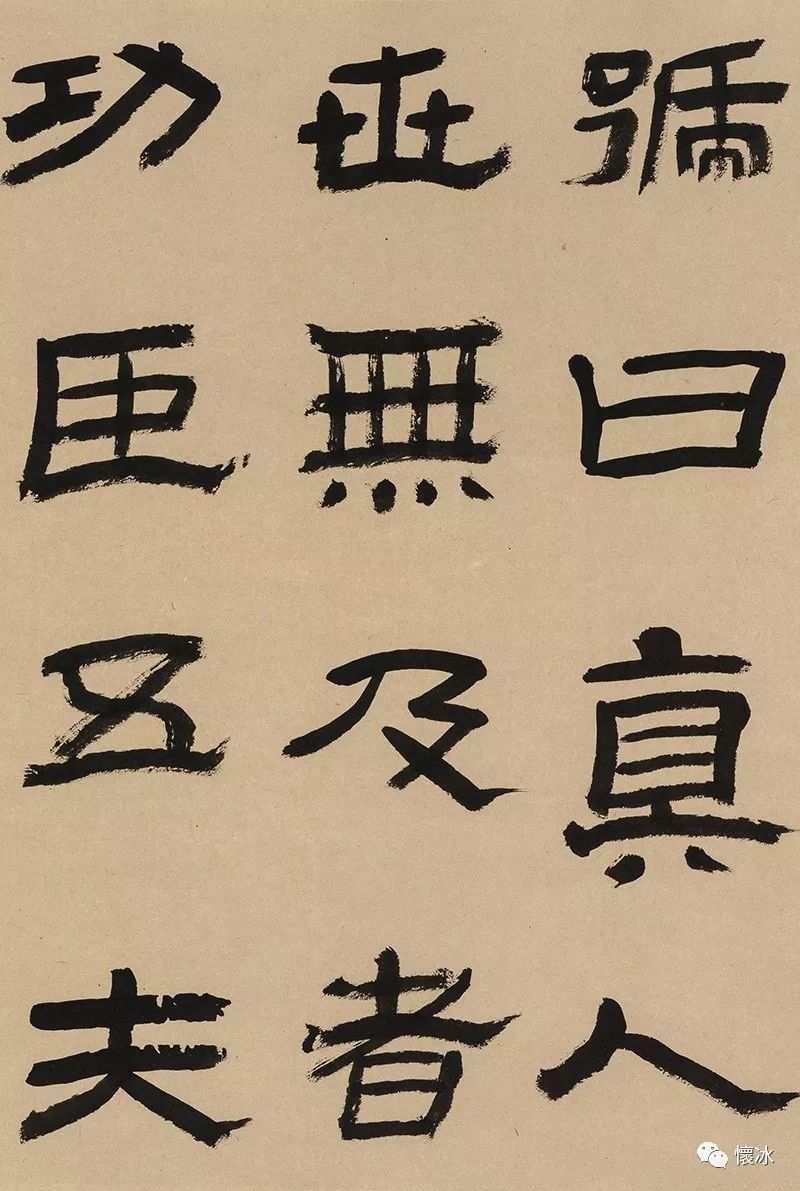 號曰真人
世無及者
功臣五夫
懷冰